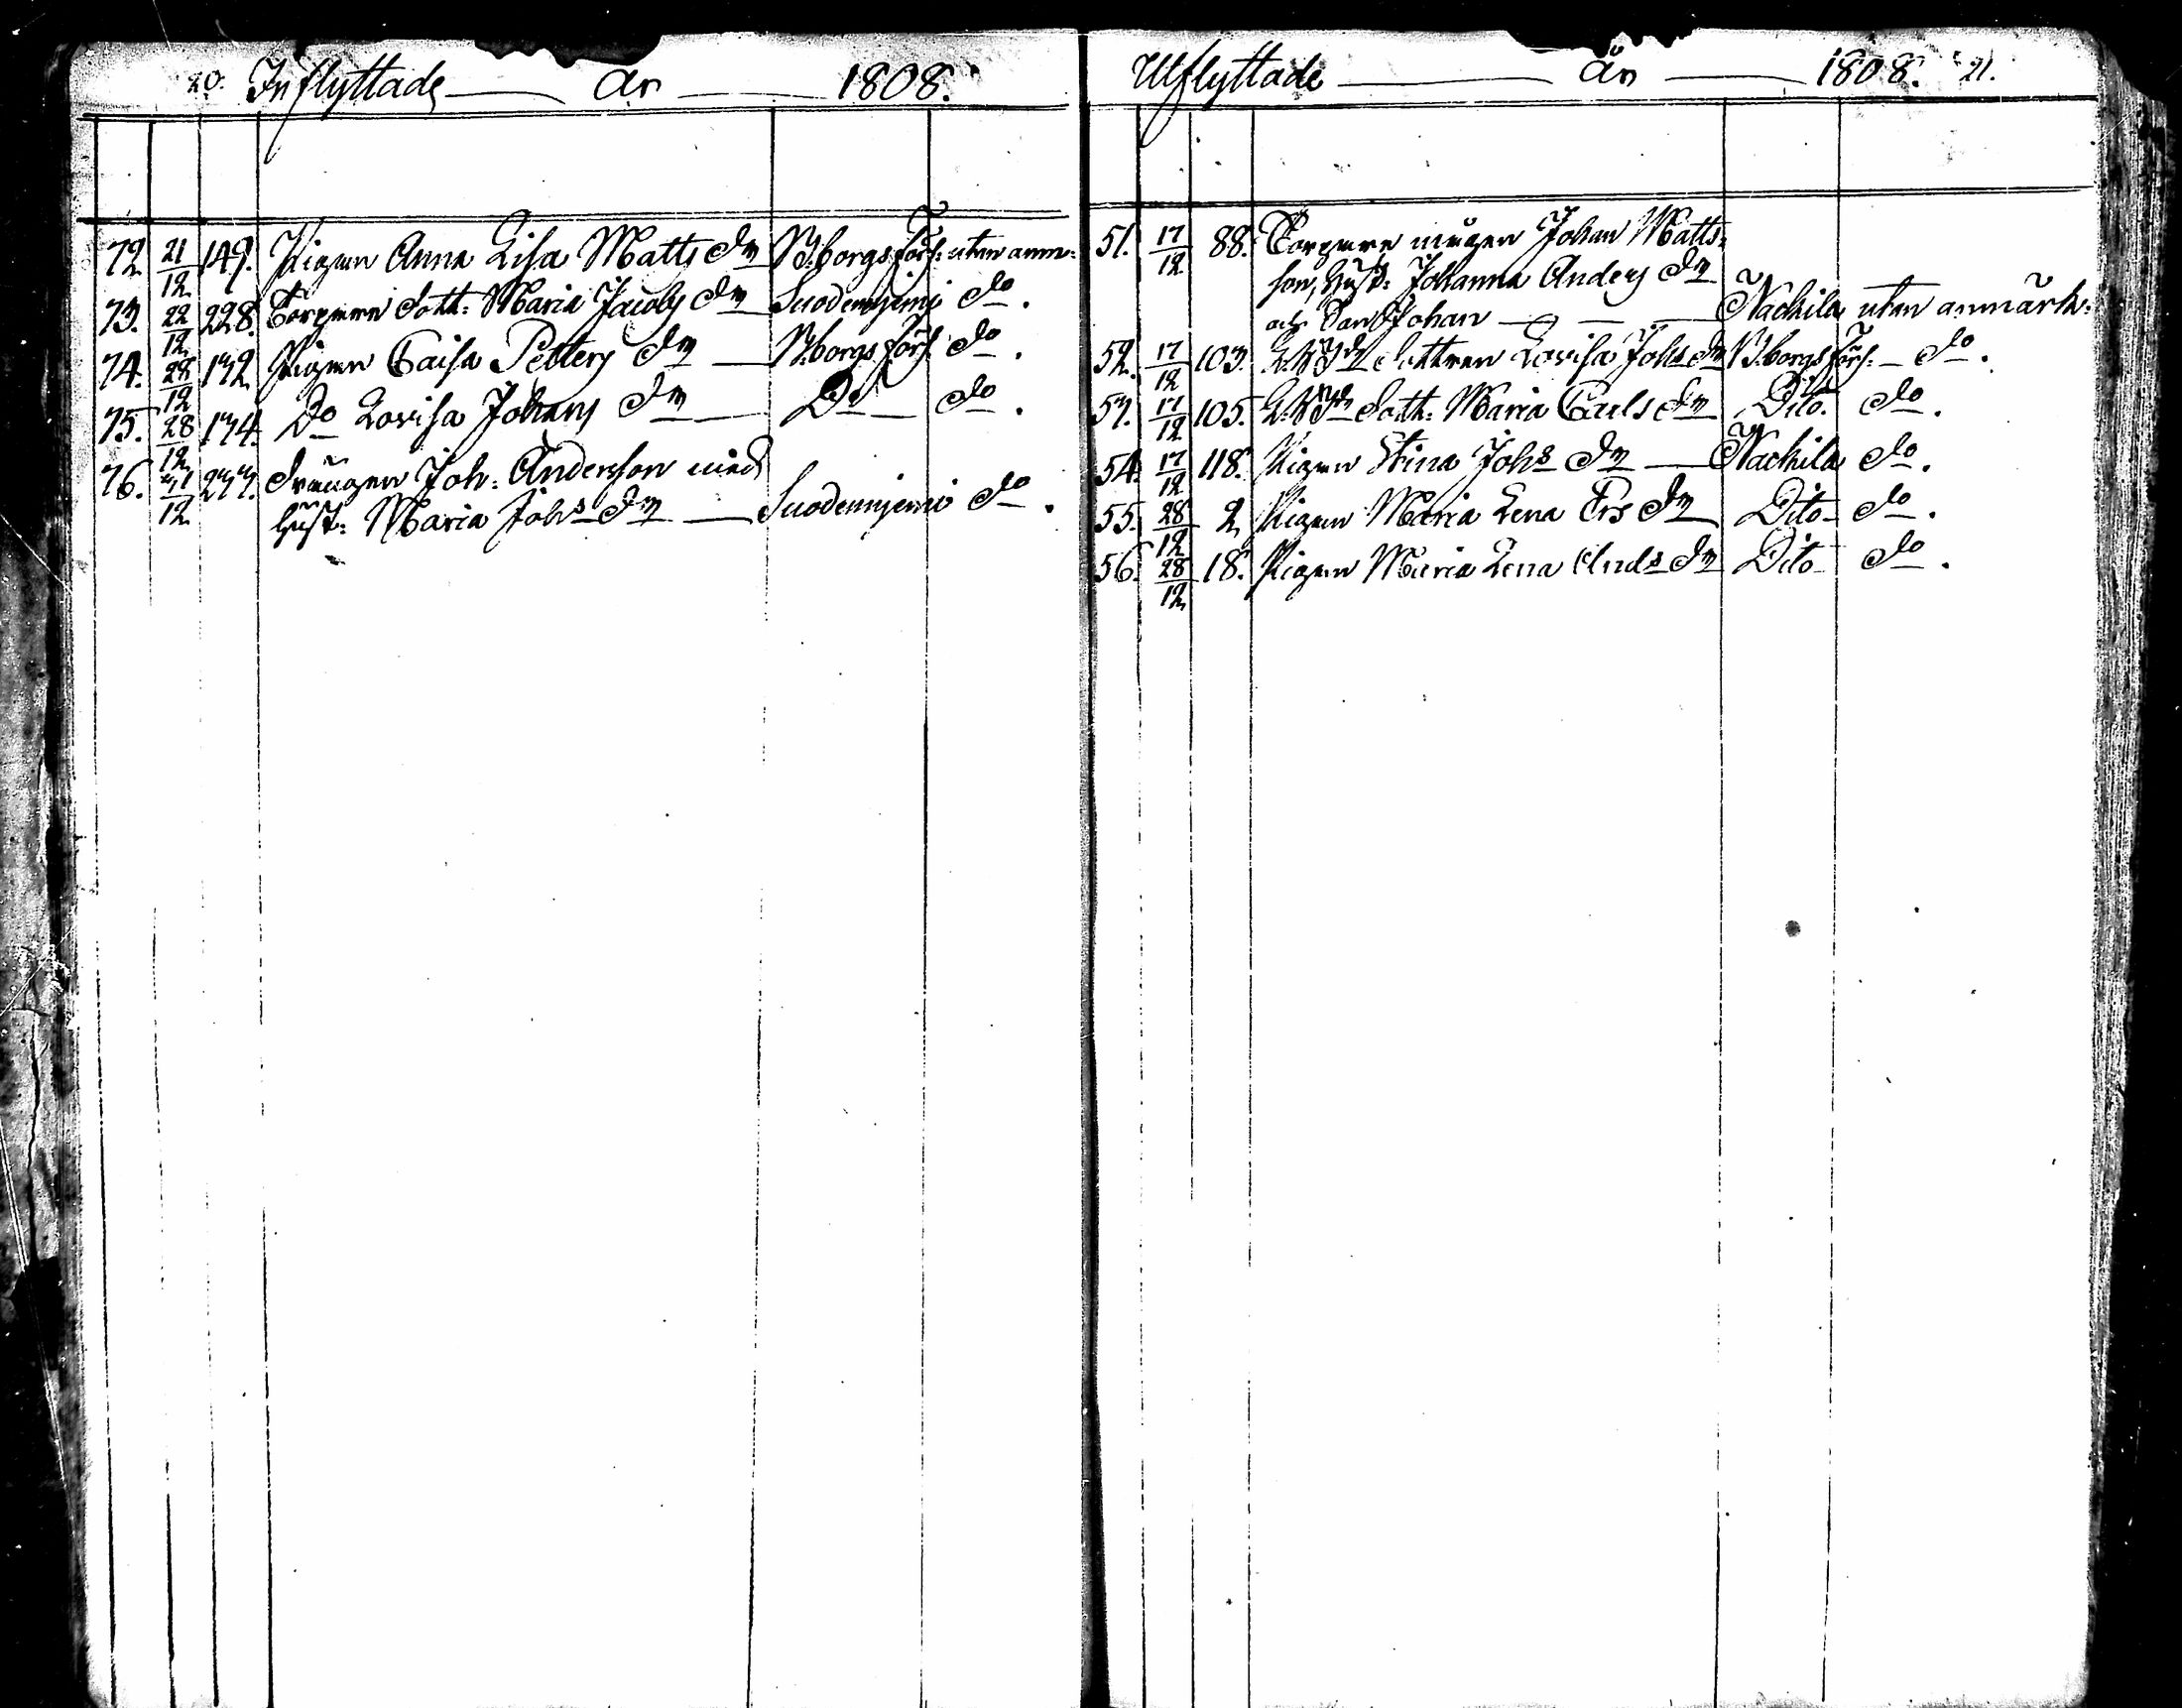 20. Inflyttade år 1808.
72. 21/12 149. Pigan Anna Lisa Matts dr B:borgs förs: utan anm:
73. 22/12 228. Torpare doth: Maria Jacobs dr Suodenniemi do.
74. 28/12 132 Pigan Caisa Petters dr B:borgs förs: do.
75. 28/12 134. Do Lovisa Johans dr Do do.
76. 31/12 233. drängen Joh: Andersson med
hust: Maria Johs dr Suodenniemi do.
Utflyttade år 1808. 21.
51. 17/12 88. Torpare mågen Johan Matts-
son, hust: Johanna Anders dr
och Son Johan Nackila utan anmärk:
52. 17/12 103. dottren Lovisa Johs dr B:borgs förs: do.
53. 17/12 105. doth: Maria Carls dr Dito do.
54. 17/12 118. Pigan Stina Johs dr Nackila do.
55. 28/12 2 Pigan Maria Lena Ers dr Dito do.
56. 28/12 18. Pigan Maria Lena Ands dr Dito do.